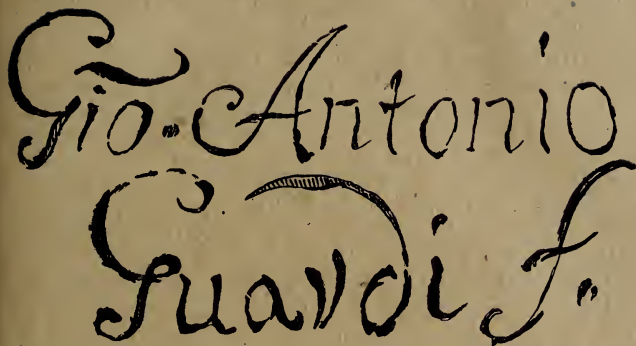 Gio. Antonio
Guardi f.